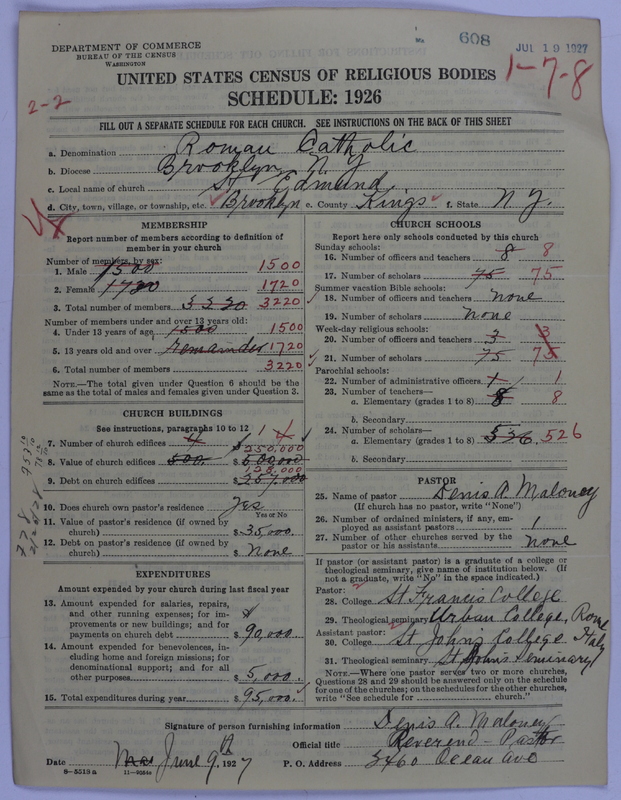 608
JUL 19 1927
1-7-8
2-2
DEPARTMENT OF COMMERCE
BUREAU OF THE CENSUS
WASHINGTON
UNITED STATES CENSUS OF RELIGIOUS BODIES
SCHEDULE: 1926
FILL OUT A SEPARATE SCHEDULE FOR EACH CHURCH. SEE INSTRUCTIONS ON THE BACK OF THIS SHEET
a. Denomination Roman Catholic
b. Diocese Brooklyn N. Y
c. Local name of church St Edmund
d. City, town, village, or township, etc. Brooklyn e. County Kings f. State N Y.
MEMBERSHIP
Report number of members according to definition of
member in your church
Number of members, by sex:
1. Male 1500 1500
2. Female 1720 1720
3. Total number of members 3220 3220
Number of members under and over 13 years old:
4. Under 13 years of age 1500 1500
5. 13 years old and over remainder 1720
6. Total number of members 3220
NOTE.—The total given under Question 6 should be the
same as the total of males and females given under Question 3.
CHURCH BUILDINGS
See instructions, paragraphs 10 to 12
7. Number of church edifices 4 1
8. Value of church edifices 500. $ 500000 250,000
9. Debt on church edifices $ 125,000
10. Does church own pastor's residence Yes
Yes or No
11. Value of pastor's residence (if owned by
church) $ 35,000.
12. Debt on pastor's residence (if owned by
church) $ None
EXPENDITURES
Amount expended by your church during last fiscal year
13. Amount expended for salaries, repairs,
and other running expenses; for im-
provements or new buildings; and for
payments on church debt $ 90,000.
14. Amount expended for benevolences, in-
cluding home and foreign missions; for
denominational support; and for all
other purposes $ 5,000.
15. Total expenditures during year $ 95,000.
CHURCH SCHOOLS
Report here only schools conducted by this church
Sunday schools:
16. Number of officers and teachers 8 8
17. Number of scholars 75 75
Summer vacation Bible schools:
18. Number of officers and teachers None
19. Number of scholars None
Week-day religious schools:
20. Number of officers and teachers 3 3
21. Number of scholars 75 75
Parochial schools:
22. Number of administrative officers 1 1
23. Number of teachers—
a. Elementary (grades 1 to 8) 8 8
b. Secondary
24. Number of scholars—
a. Elementary (grades 1 to 8) 526 526
b. Secondary
PASTOR
25. Name of pastor Denis A. Maloney
(If church has no pastor, write "None")
26. Number of ordained ministers, if any, em-
ployed as assistant pastors 1
27. Number of other churches served by the
pastor or his assistants None
If pastor (or assistant pastor) is a graduate of a college or
theological seminary, give name of institution below. (If
not a graduate, write "No" in the space indicated.)
Pastor:
28. College St Francis College
29. Theological seminary Urban College, Rome Italy
Assistant pastor:
30. College St Johns College
31. Theological seminary St Johns Seminary
NOTE.—Where one pastor serves two or more churches,
Questions 28 and 29 should be answered only on the schedule
for one of the churches; on the schedules for the other churches,
write "See schedule for church."
Signature of person furnishing information Denis A. Maloney
Official title Reverend - Pastor
Date June 9th 1927 P. O. Address 2460 Ocean Ave
8-5519 a